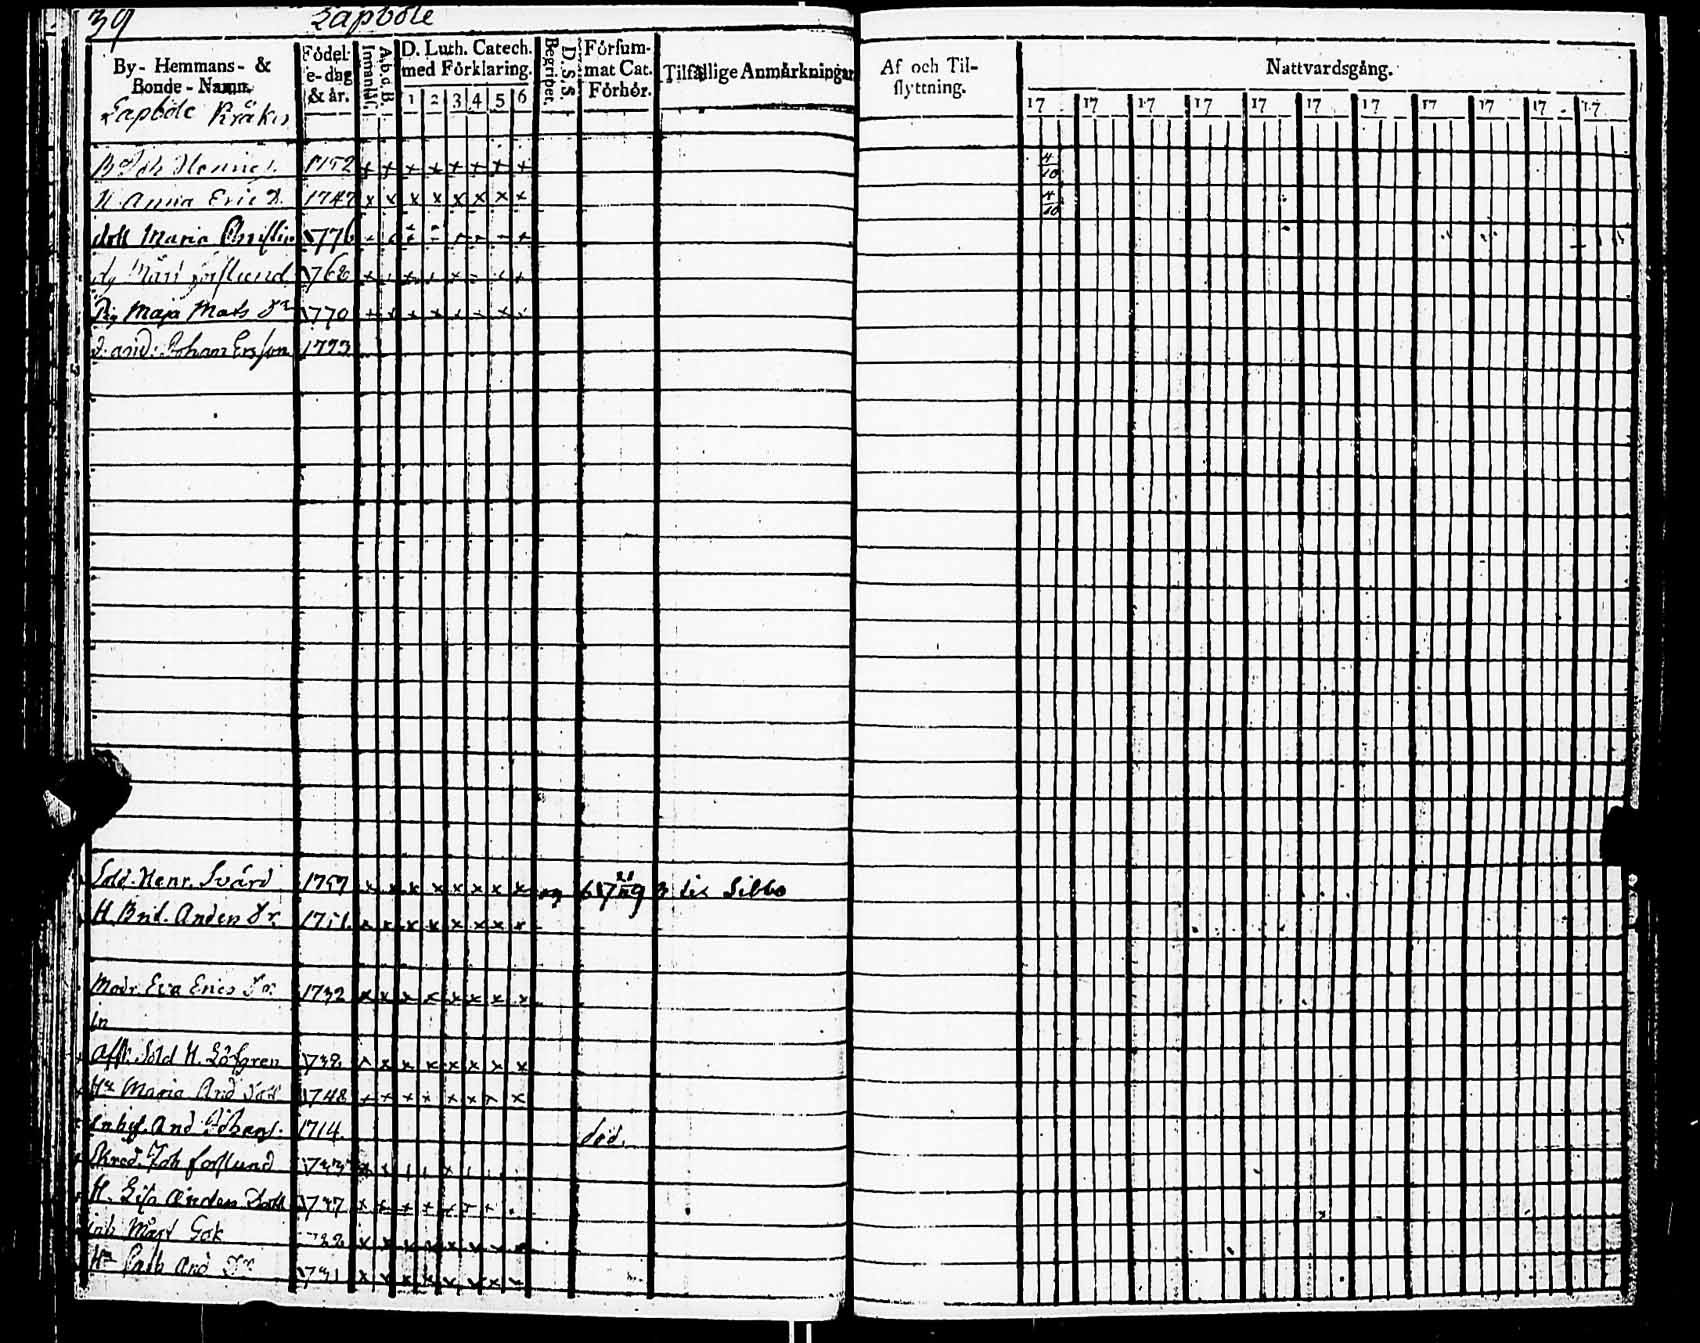 39 Lapböle
By- Hemmans- & Bonde-Namn.
Födelse-dag & år.
Innanläs.
A.b.d.B.
D. Luth. Catech. med Förklaring.
1 2 3 4 5 6
D.S.S. Begriper.
Försummat Cat. Förhör.
Tilfällige Anmärkningar
Af och Tilflyttning.
Nattvardsgång.
17 17 17 17 17 17 17 17 17 17 17
Lapböle Kråkis
B Joh Henrics. 1752 + + + + + + + + 4/10
H. Anna Erics D. 1747 x x x x x x x x 4/10
dott Maria Christin 1776
Mårt forslund 1768
Pig Maja Mats dr 1770
Johan Ersson 1773
Sold. Henr. Svärd 1757 x x x x x x x x Sibbo
H. Brit. Anders dr. 1751 x x x x x x x x
Modr. Eva Erics dr. 1732 x x x x x x x x
Afsk. Sold H. Löfgren 1732 x x x x x x x x
Hu Maria And dott 1748 + + + + x x x x
Inhys. And Johans. 1714 död.
Skred. Joh forslund 1733
H. Lisa Anders Dott 1737
inh Mårt Gök
Hu Cath And Dr 1731 x x x x x x x x